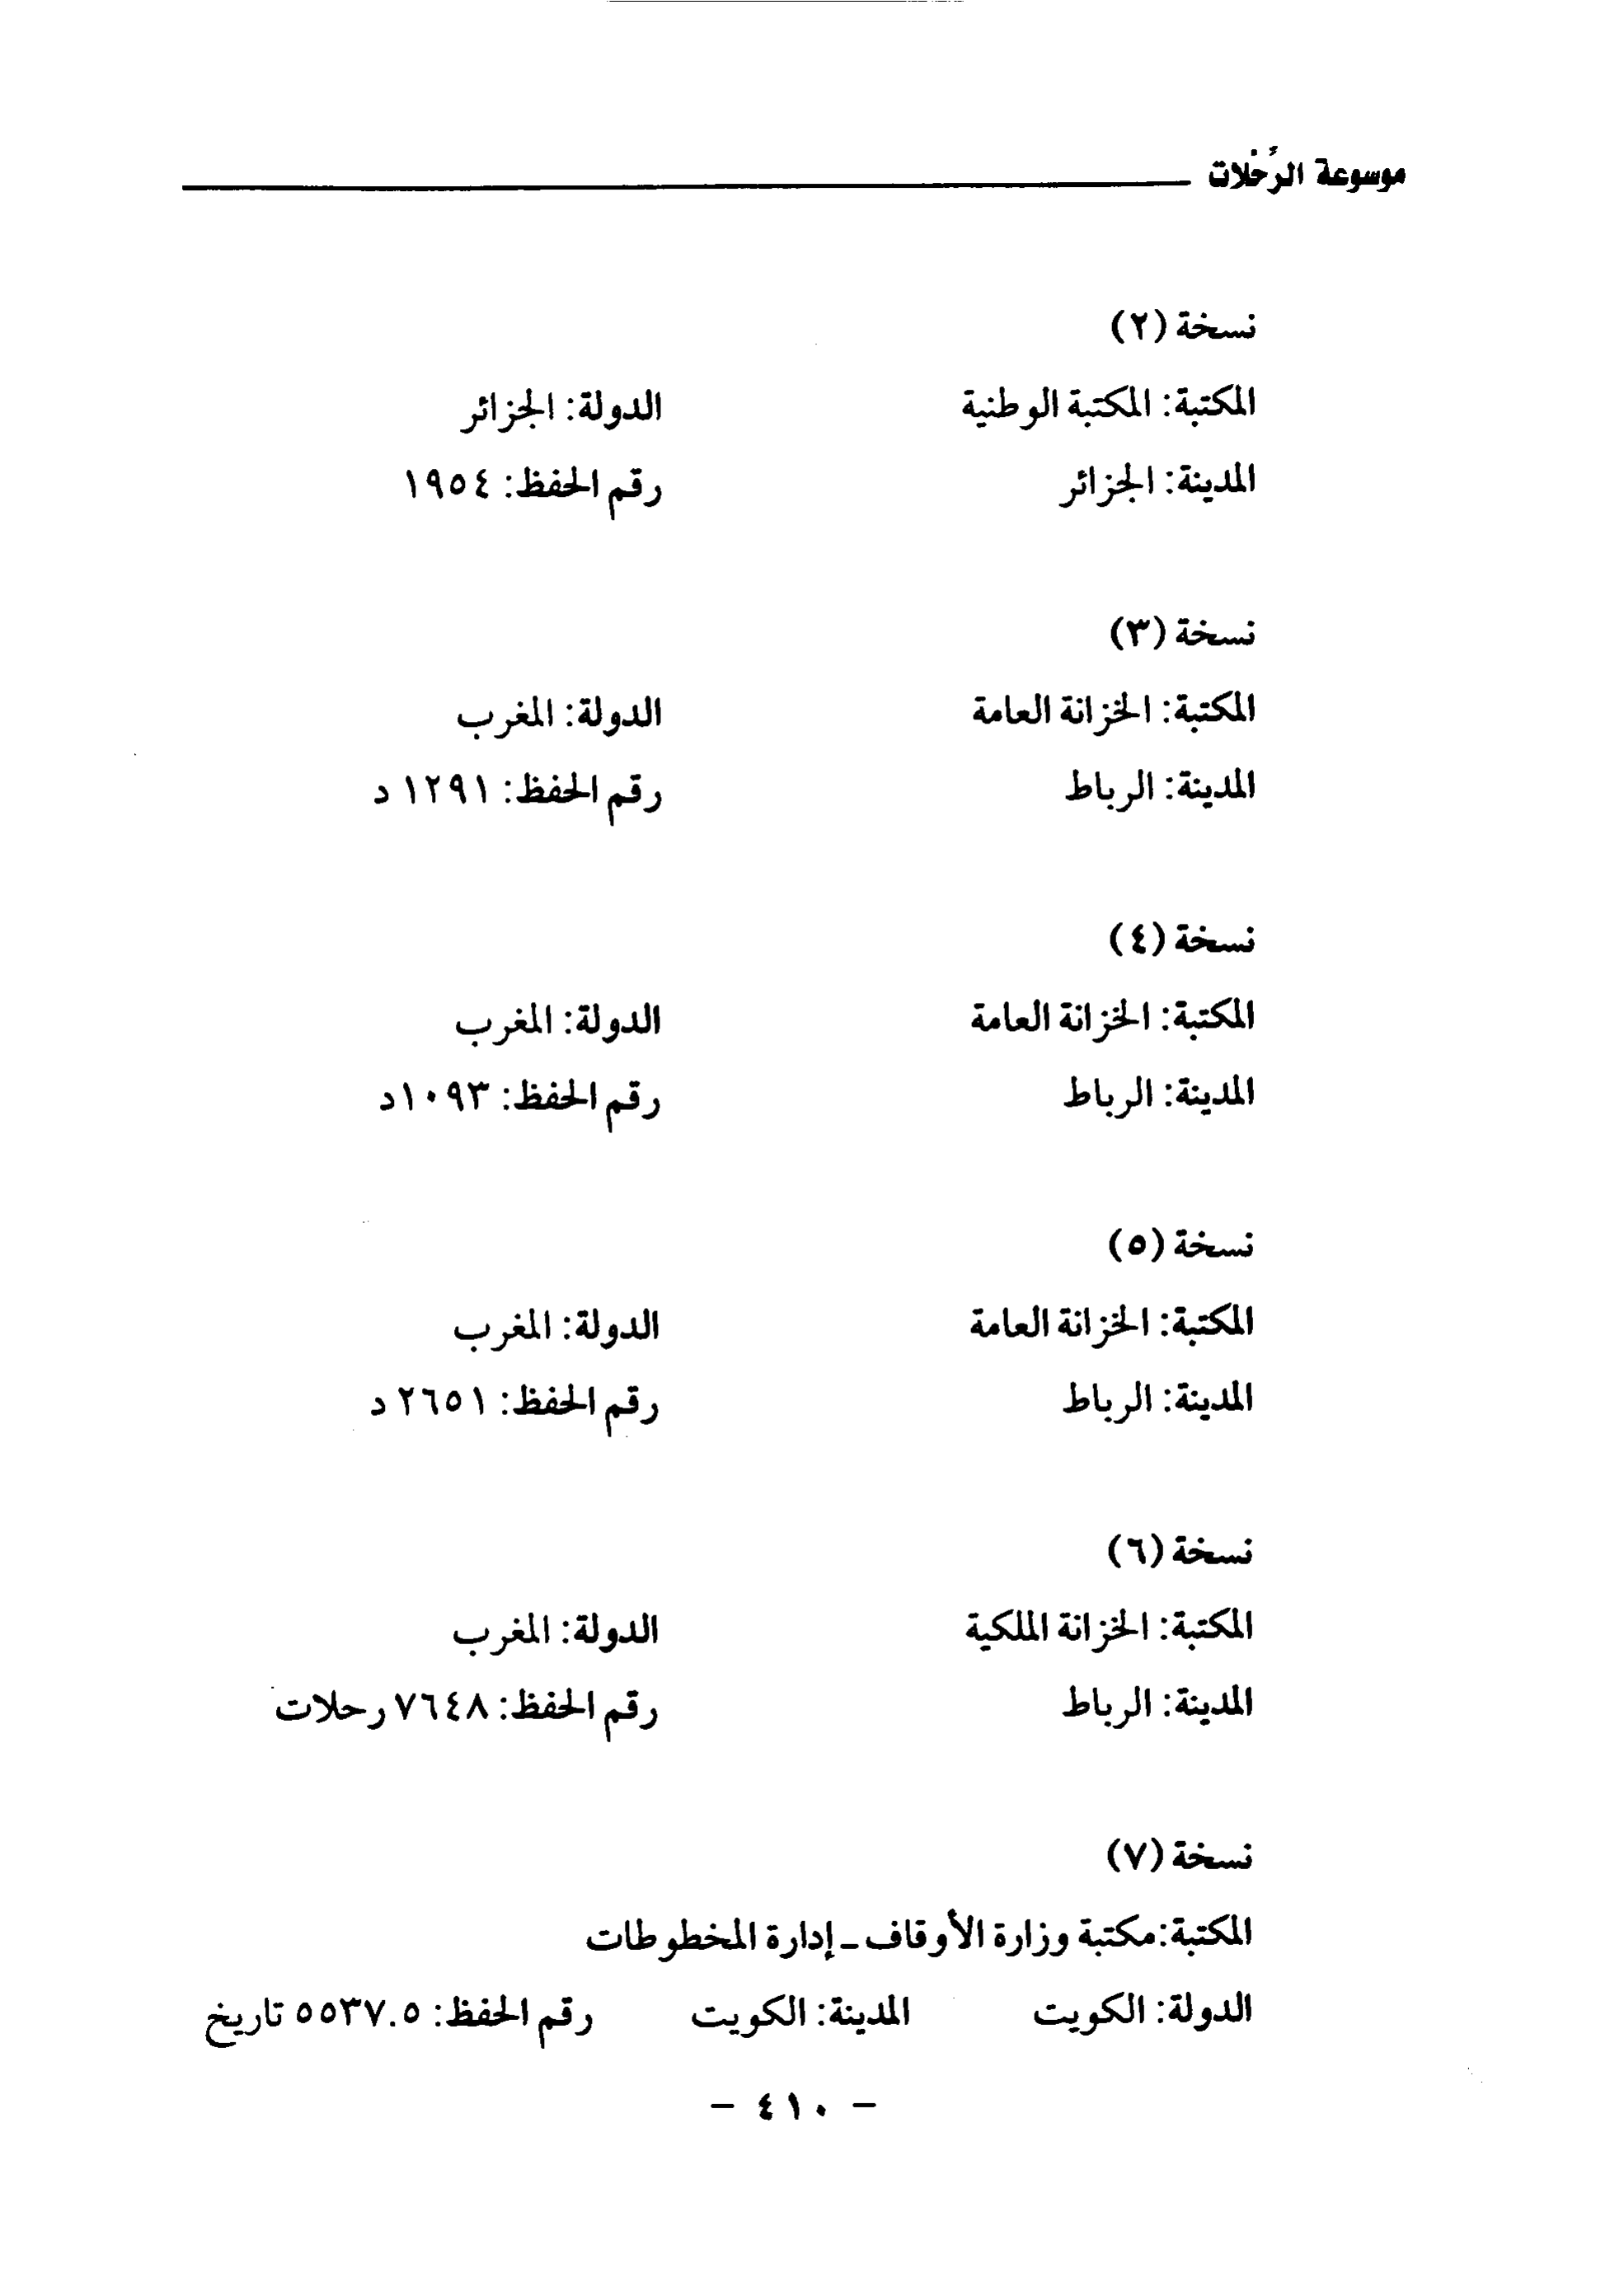 موسوعة الرحلات
نسخة (٢)
المكتبة: المكتبة الوطنية الدولة: الجزائر
المدينة: الجزائر رقم الحفظ: ١٩٥٤
نسخة (٣)
المكتبة: الخزانة العامة الدولة: المغرب
المدينة: الرباط رقم الحفظ: ١٢٩١ د
نسخة (٤)
المكتبة: الخزانة العامة الدولة: المغرب
المدينة: الرباط رقم الحفظ: ١٠٩٣د
نسخة (٥)
المكتبة: الخزانة العامة الدولة: المغرب
المدينة: الرباط رقم الحفظ: ٢٦٥١ د
نسخة (٦)
المكتبة: الخزانة الملكية الدولة: المغرب
المدينة: الرباط رقم الحفظ: ٧٦٤٨ رحلات
نسخة (٧)
المكتبة:مكتبة وزارة الأوقاف - إدارة المخطوطات
الدولة: الكويت المدينة: الكويت رقم الحفظ: ٥٥٣٧.٥ تاريخ
- ٤١٠ -